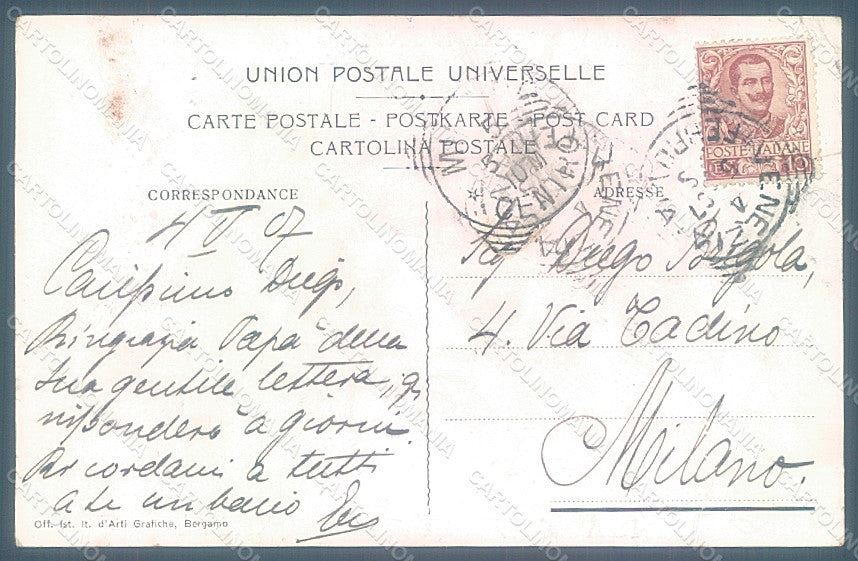 UNION POSTALE UNIVERSELLE
CARTE POSTALE - POSTKARTE - POST CARD
CARTOLINA POSTALE
CORRESPONDANCE
ADRESSE
POSTE ITALIANE
10
CENTRO
4 V 07
Carissimo Diego,
Ringrazia Papà della
sua gentile lettera, gli
risponderò a giorni.
Ricordami a tutti
a te un bacio
Sig Diego
4. Via Tadino
Milano.
Off. Ist. It. d'Arti Grafiche, Bergamo
CARTOLINOMANIA